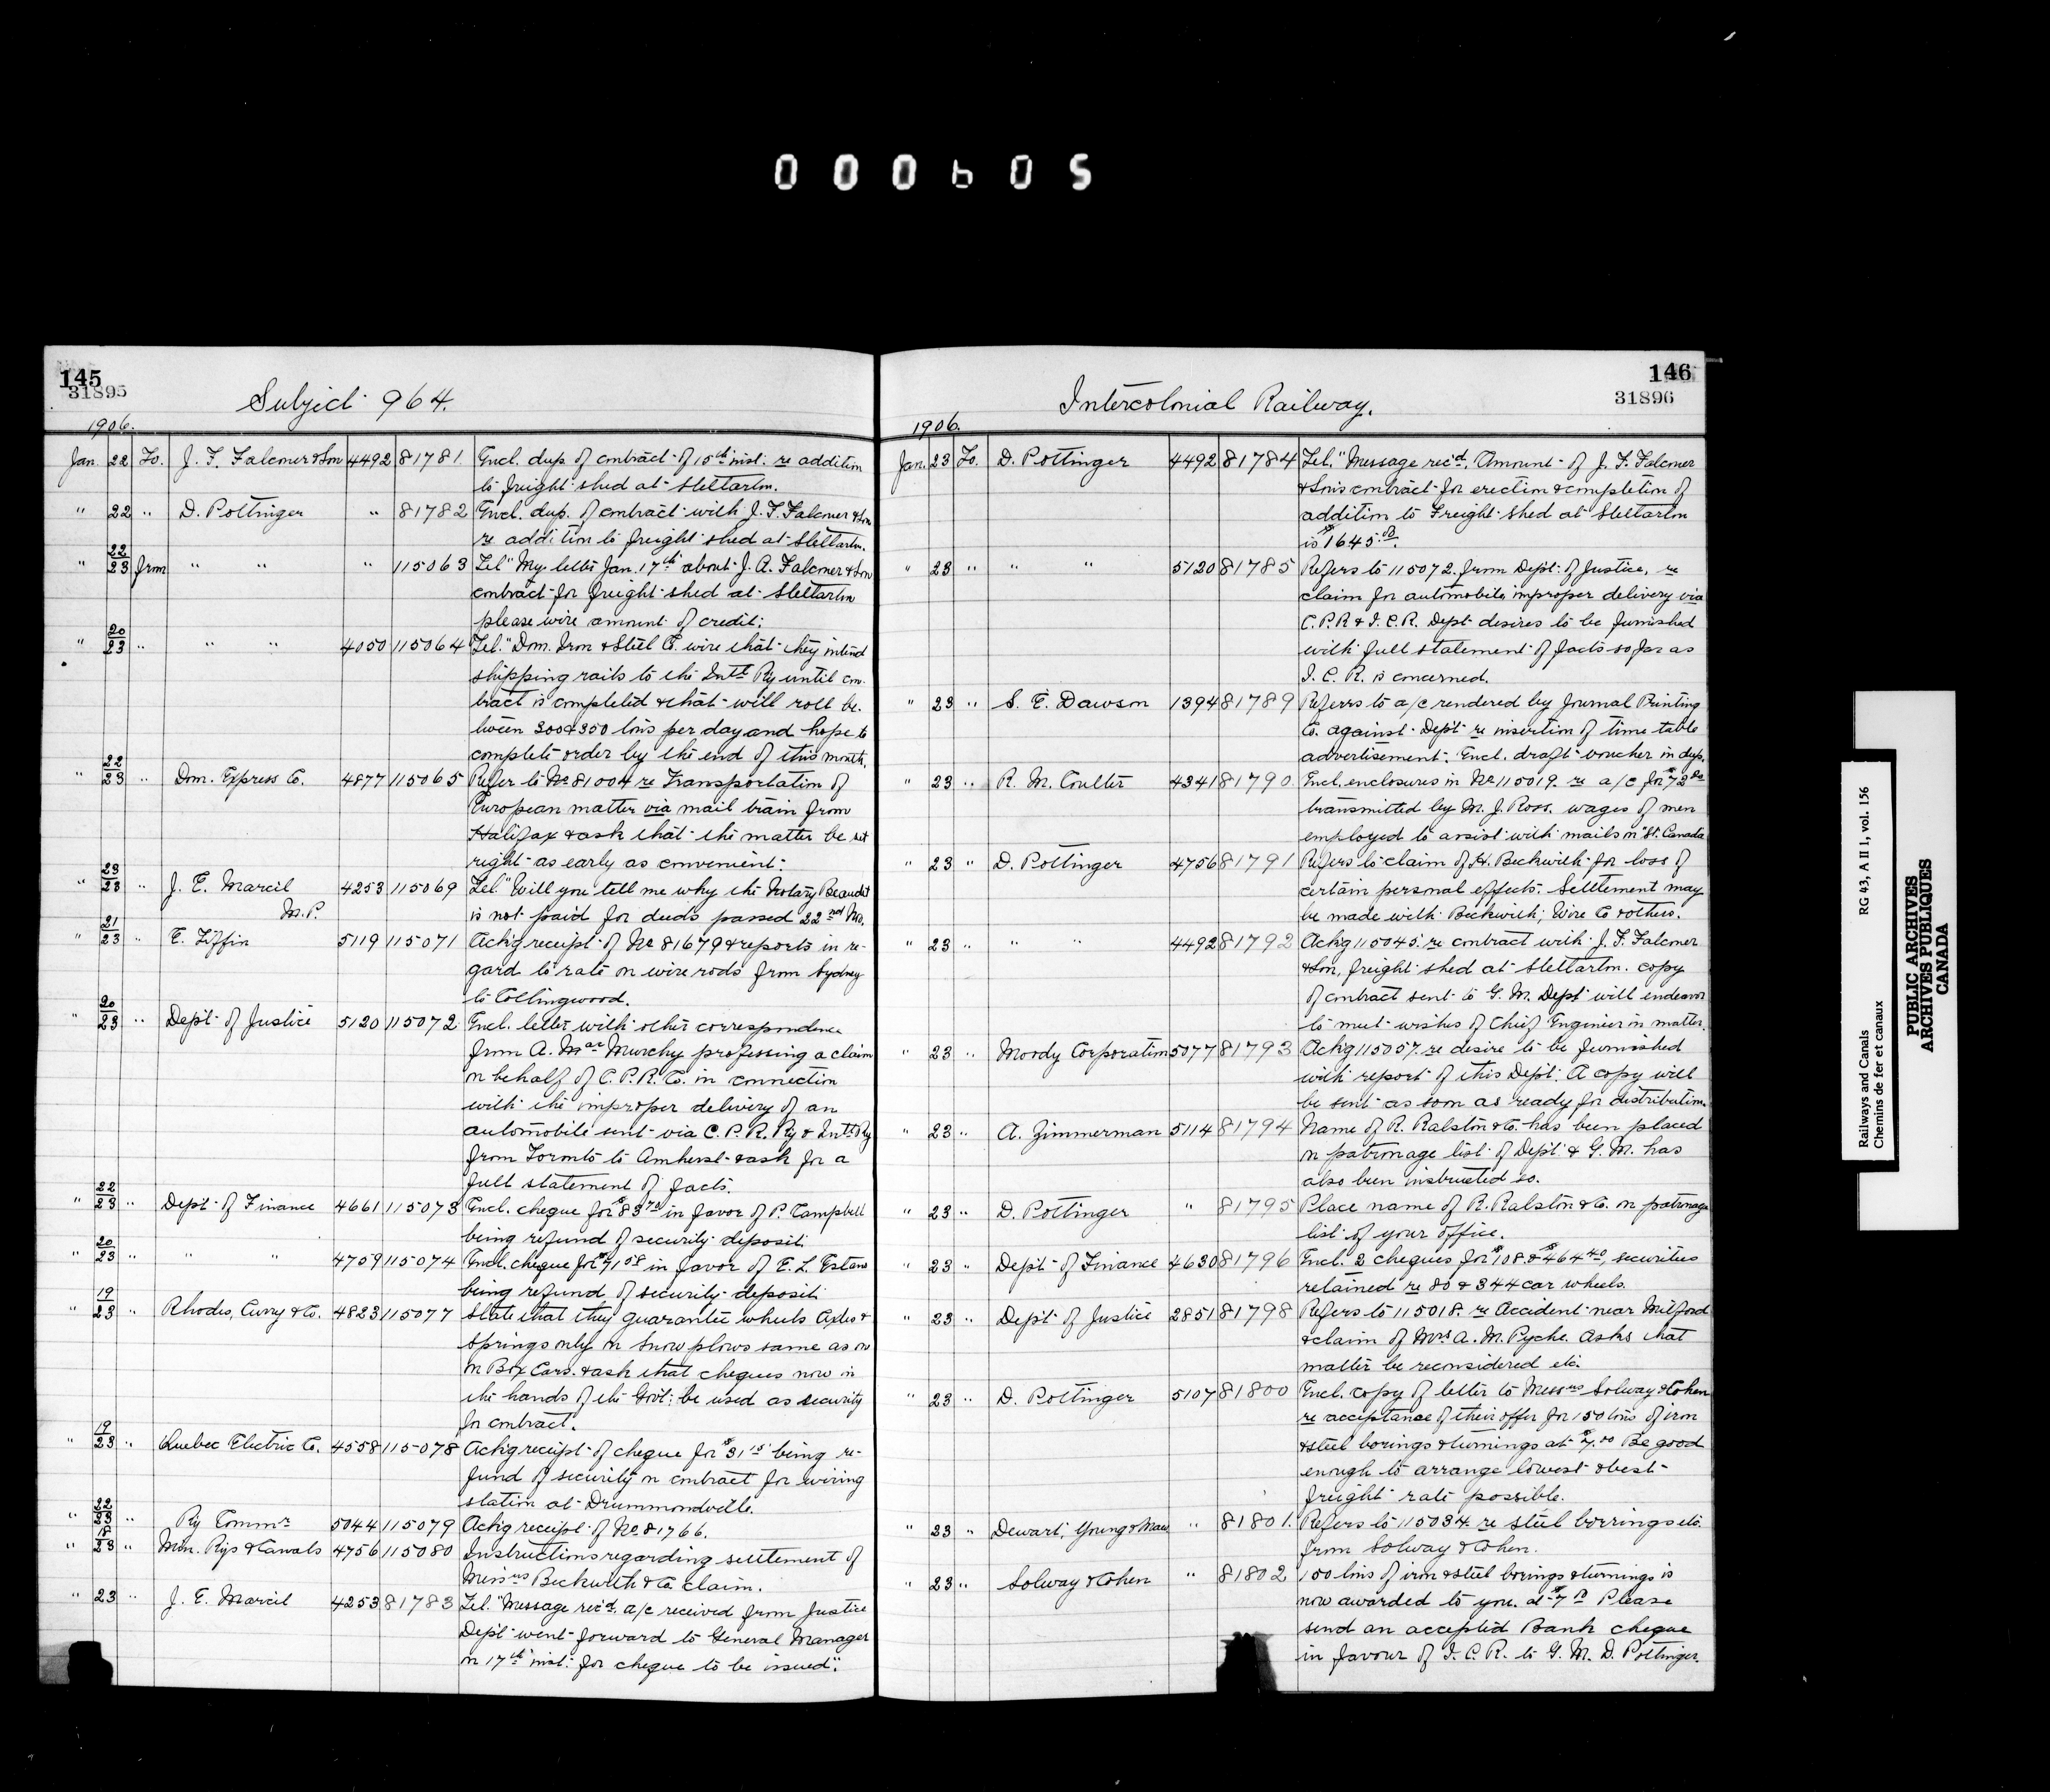 000605
145
31895
Subject 964.
1906.
Jan. 22 To. J. F. Falconer & Son 4492 81781 Encl. dup. of contract of 15th inst. re addition
to freight shed at Stellarton.
" 22 " D. Pottinger " 81782 Encl. dup. of contract with J. F. Falconer & Son
re addition to freight shed at Stellarton.
" 22/23 from " " " 115063 Tel "My letter Jan. 17th about J. A. Falconer & Son
contract for freight shed at Stellarton
please wire amount of credit.
" 20/23 " " " 4050 115064 Tel. "Dom. Iron & Steel Co. wire that they intend
shipping rails to the Intl Ry until con-
tract is completed & that will roll be-
tween 300 & 350 tons per day and hope to
complete order by the end of this month.
" 22/23 " Dom. Express Co. 4877 115065 Refer to No 81004 re Transportation of
European matter via mail train from
Halifax & ask that the matter be set
right as early as convenient.
" 23/23 " J. E. Marcil M.P. 4253 115069 Tel "Will you tell me why the Notary Beaudet
is not paid for deeds passed 22nd No.
" 21/23 " E. Tiffin 5119 115071 Ackg receipt of No 81679 & reports in re-
gard to rate on wire rods from Sydney
to Collingwood.
" 20/23 " Dept of Justice 5120 115072 Encl. letter with other correspondence
from A. Mac Murchy professing a claim
on behalf of C. P. R. Co. in connection
with the improper delivery of an
automobile sent via C. P. R. Ry & Intl Ry
from Toronto to Amherst & ask for a
full statement of facts.
" 22/23 " Dept of Finance 4661 115073 Encl. cheque for $83 70 in favor of P. Campbell
being refund of security deposit.
" 20/23 " " " 4759 115074 Encl. cheque for $71 08 in favor of E. L.
being refund of security deposit
" 19/23 " Rhodes, Curry & Co. 4823 115077 State that they guarantee wheels Axles &
Springs only on snow plows same as on
on Box Cars. & ask that cheques now in
the hands of the Govt. be used as security
for contract.
" 19/23 " Quebec Electric Co. 4558 115078 Ackg receipt of cheque for $31 15 being re-
fund of security on contract for wiring
station at Drummondville.
" 22/23 " Ry Commr 5044 115079 Ackg receipt of No. 81766.
" 18/23 " Min. Rys & Canals 4756 115080 Instructions regarding settlement of
Messrs Beckwith & Co. claim.
" 23 " J. E. Marcil 4253 81783 Tel. "Message rec'd. a/c received from Justice
Dept went forward to General Manager
on 17th inst. for cheque to be issued".
146
31896
Intercolonial Railway.
1906.
Jan. 23 To. D. Pottinger 4492 81784 Tel. "Message rec'd. Amount of J. F. Falconer
& Sons contract for erection & completion of
addition to Freight shed at Stellarton
is $1645.00.
" 23 " " " 5120 81785 Refers to 115072. from Dept. of Justice, re
claim for automobile improper delivery via
C. P. R & I. C. R. Dept desires to be furnished
with full statement of facts so far as
I. C. R. is concerned.
" 23 " S. E. Dawson 1394 81789 Referrs to a/c rendered by Journal Printing
Co. against Dept re insertion of time table
advertisement. Encl. draft voucher in dup.
" 23 " R. M. Coulter 4341 81790 Encl. enclosures in No 115019. re a/c for $72
transmitted by M. J. Ross. wages of men
employed to assist with mails on "St. Canada
" 23 " D. Pottinger 4756 81791 Refers to claim of H. Beckwith for loss of
certain personal effects. Settlement may
be made with Beckwith; Wire Co & others.
" 23 " " " 4492 81792 Ackg 115045. re contract with J. F. Falconer
& Son, freight shed at Stellarton. copy
of contract sent to G. M. Dept will endeavor
to meet wishes of Chief Engineer in matter.
" 23 " Moody Corporation 5077 81793 Ackg 115057. re desire to be furnished
with report of this Dept. A copy will
be sent as soon as ready for distribution.
" 23 " A. Zimmerman 5114 81794 Name of R. Ralston & Co. has been placed
on patronage list of Dept. & G. M. has
also been instructed so.
" 23 " D. Pottinger " 81795 Place name of R. Ralston & Co. on patronage
list of your office.
" 23 " Dept of Finance 4630 81796 Encl. 2 cheques for $108 & $464 40, securities
retained re 80 & 344 car wheels.
" 23 " Dept of Justice 2851 81798 Refers to 115018. re Accident near Milford
& claim of Mrs A. M. Pyche. Asks that
matter be reconsidered etc.
" 23 " D. Pottinger 5107 81800 Encl. copy of letter to Messrs Solway & Cohen
re acceptance of their offer for 150 tons of iron
& steel borings & turnings at $7.00 Be good
enough to arrange lowest & best
freight rate possible.
" 23 " Dewart, Young & Maw " 81801. Refers to 115034. re steel borrings etc.
from Solway & Cohen.
" 23 " Solway & Cohen " 81802 150 tons of iron & steel borings & turnings is
now awarded to you. at $7 00 Please
send an accepted Bank cheque
in favour of I. C. R. to G. M. D. Pottinger.
Railways and Canals RG 43, A II 1, vol. 156
Chemins de fer et canaux
PUBLIC ARCHIVES
ARCHIVES PUBLIQUES
CANADA